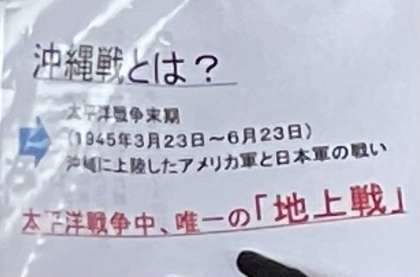 沖縄戦とは？
太平洋戦争末期
(1945年3月23日～6月23日)
沖縄に上陸したアメリカ軍と日本軍の戦い
太平洋戦争中、唯一の「地上戦」